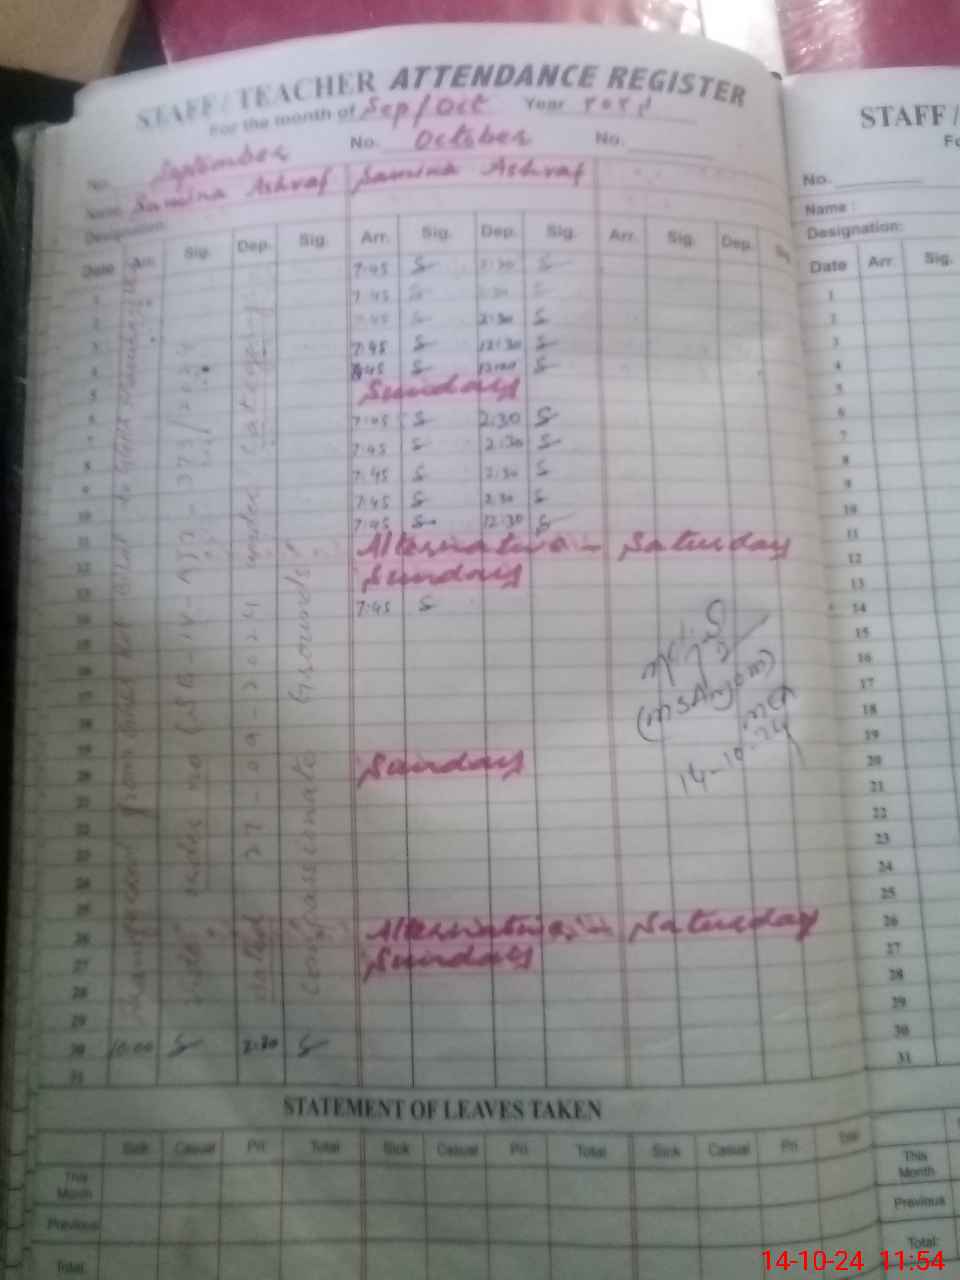 STAFF / TEACHER ATTENDANCE REGISTER
For the month of Sep/Oct Year
No. September No. October No.
Name Samina Ashraf Samina Ashraf
Designation:
Date Arr. Sig. Dep. Sig. Arr. Sig. Dep. Sig. Arr. Sig. Dep. Sig.
1 7:45 S 2:30 S
2 7:45 S 2:30 S
3 7:45 S 2:30 S
4 7:45 S 12:30 S
5 7:45 S S
6 Sunday
7 7:45 S 2:30 S
8 7:45 S 2:30 S
9 7:45 S 2:30 S
10 7:45 S 2:30 S
11 7:45 S 12:30 S
12 Alternative - Saturday
13 Sunday
14 7:45 S
15
16
17
18
19
20 Sunday
21
22
23
24
25
26 Alternative - Saturday
27 Sunday
28
29
30 10:00 S 2:30 S
31
dated 27-09-2024 under category
compassionate Grounds
14-10-24
STATEMENT OF LEAVES TAKEN
Sick Casual Pri. Total Sick Casual Pri. Total Sick Casual Pri.
This Month
Previous
Total:
STAFF /
No.
Name :
Designation:
Date Arr. Sig.
1
2
3
4
5
6
7
8
9
10
11
12
13
14
15
16
17
18
19
20
21
22
23
24
25
26
27
28
29
30
31
This Month
Previous
Total:
14-10-24 11:54